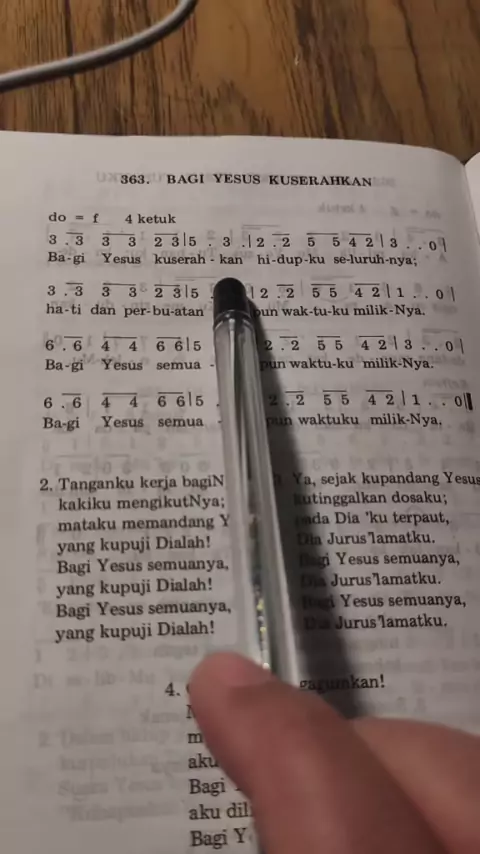 363. BAGI YESUS KUSERAHKAN
do = f 4 ketuk
3 . 3 3 3 2 3 | 5 . 3 . | 2 . 2 5 5 4 2 | 3 . . 0 |
Ba-gi Yesus kuserah - kan hi-dup-ku se-luruh-nya;
3 . 3 3 3 2 3 | 5 . | 2 . 2 5 5 4 2 | 1 . . 0 |
ha-ti dan per-bu-atan pun wak-tu-ku milik-Nya.
6 . 6 4 4 6 6 | 5 2 . 2 5 5 4 2 | 3 . . 0 |
Ba-gi Yesus semua - pun waktu-ku milik-Nya.
6 . 6 4 4 6 6 | 5 . 2 . 2 5 5 4 2 | 1 . . 0 ||
Ba-gi Yesus semua - pun waktuku milik-Nya.
2. Tanganku kerja bagiN
kakiku mengikutNya;
mataku memandang
yang kupuji Dialah!
Bagi Yesus semuanya,
yang kupuji Dialah!
Bagi Yesus semuanya,
yang kupuji Dialah!
Ya, sejak kupandang Yesus
kutinggalkan dosaku;
pada Dia 'ku terpaut,
Dia Jurus'lamatku.
Bagi Yesus semuanya,
Dia Jurus'lamatku.
Bagi Yesus semuanya,
Dia Jurus'lamatku.
4.
aku
Bagi
aku
Bagi